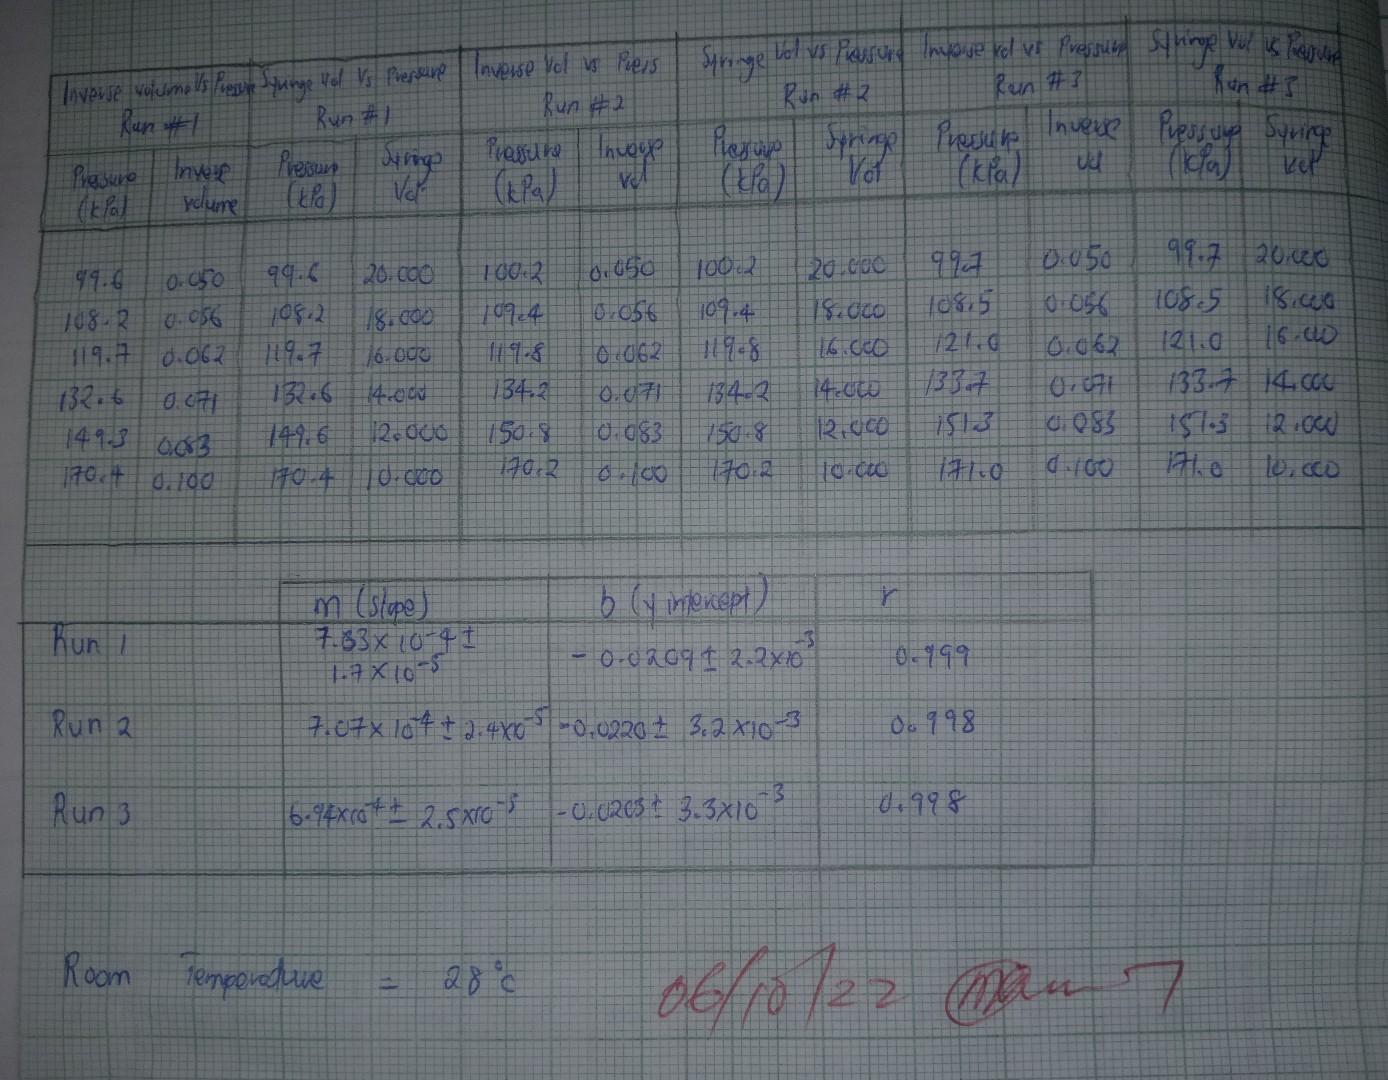 Inverse volume Vs Pressure Run #1 | Syringe Vol Vs Pressure Run #1 | Inverse Vol vs Press Run #2 | Syringe Vol vs Pressure Run #2 | Inverse vol vs Pressure Run #3 | Syringe Vol vs Pressure Run #3
Pressure (kPa) | Inverse volume | Pressure (kPa) | Syringe Vol | Pressure (kPa) | Inverse vol | Pressure (kPa) | Syringe Vol | Pressure (kPa) | Inverse vol | Pressure (kPa) | Syringe vol
99.6 | 0.050 | 99.6 | 20.000 | 100.2 | 0.050 | 100.2 | 20.000 | 99.7 | 0.050 | 99.7 | 20.000
108.2 | 0.056 | 108.2 | 18.000 | 109.4 | 0.056 | 109.4 | 18.000 | 108.5 | 0.056 | 108.5 | 18.000
119.7 | 0.062 | 119.7 | 16.000 | 119.8 | 0.062 | 119.8 | 16.000 | 121.0 | 0.062 | 121.0 | 16.000
132.6 | 0.071 | 132.6 | 14.000 | 134.2 | 0.071 | 134.2 | 14.000 | 133.7 | 0.071 | 133.7 | 14.000
149.3 | 0.083 | 149.6 | 12.000 | 150.8 | 0.083 | 150.8 | 12.000 | 151.3 | 0.083 | 151.3 | 12.000
170.4 | 0.100 | 170.4 | 10.000 | 170.2 | 0.100 | 170.2 | 10.000 | 171.0 | 0.100 | 171.0 | 10.000
m (slope) | b (y intercept) | r
Run 1 | 7.33 x 10⁻⁴ ± 1.7 x 10⁻⁵ | - 0.0209 ± 2.2x10⁻³ | 0.999
Run 2 | 7.07 x 10⁻⁴ ± 2.4x10⁻⁵ | -0.0220 ± 3.2 x10⁻³ | 0.998
Run 3 | 6.94x10⁻⁴ ± 2.5x10⁻⁵ | -0.0203 ± 3.3x10⁻³ | 0.998
Room Temperature = 28°C
06/10/22